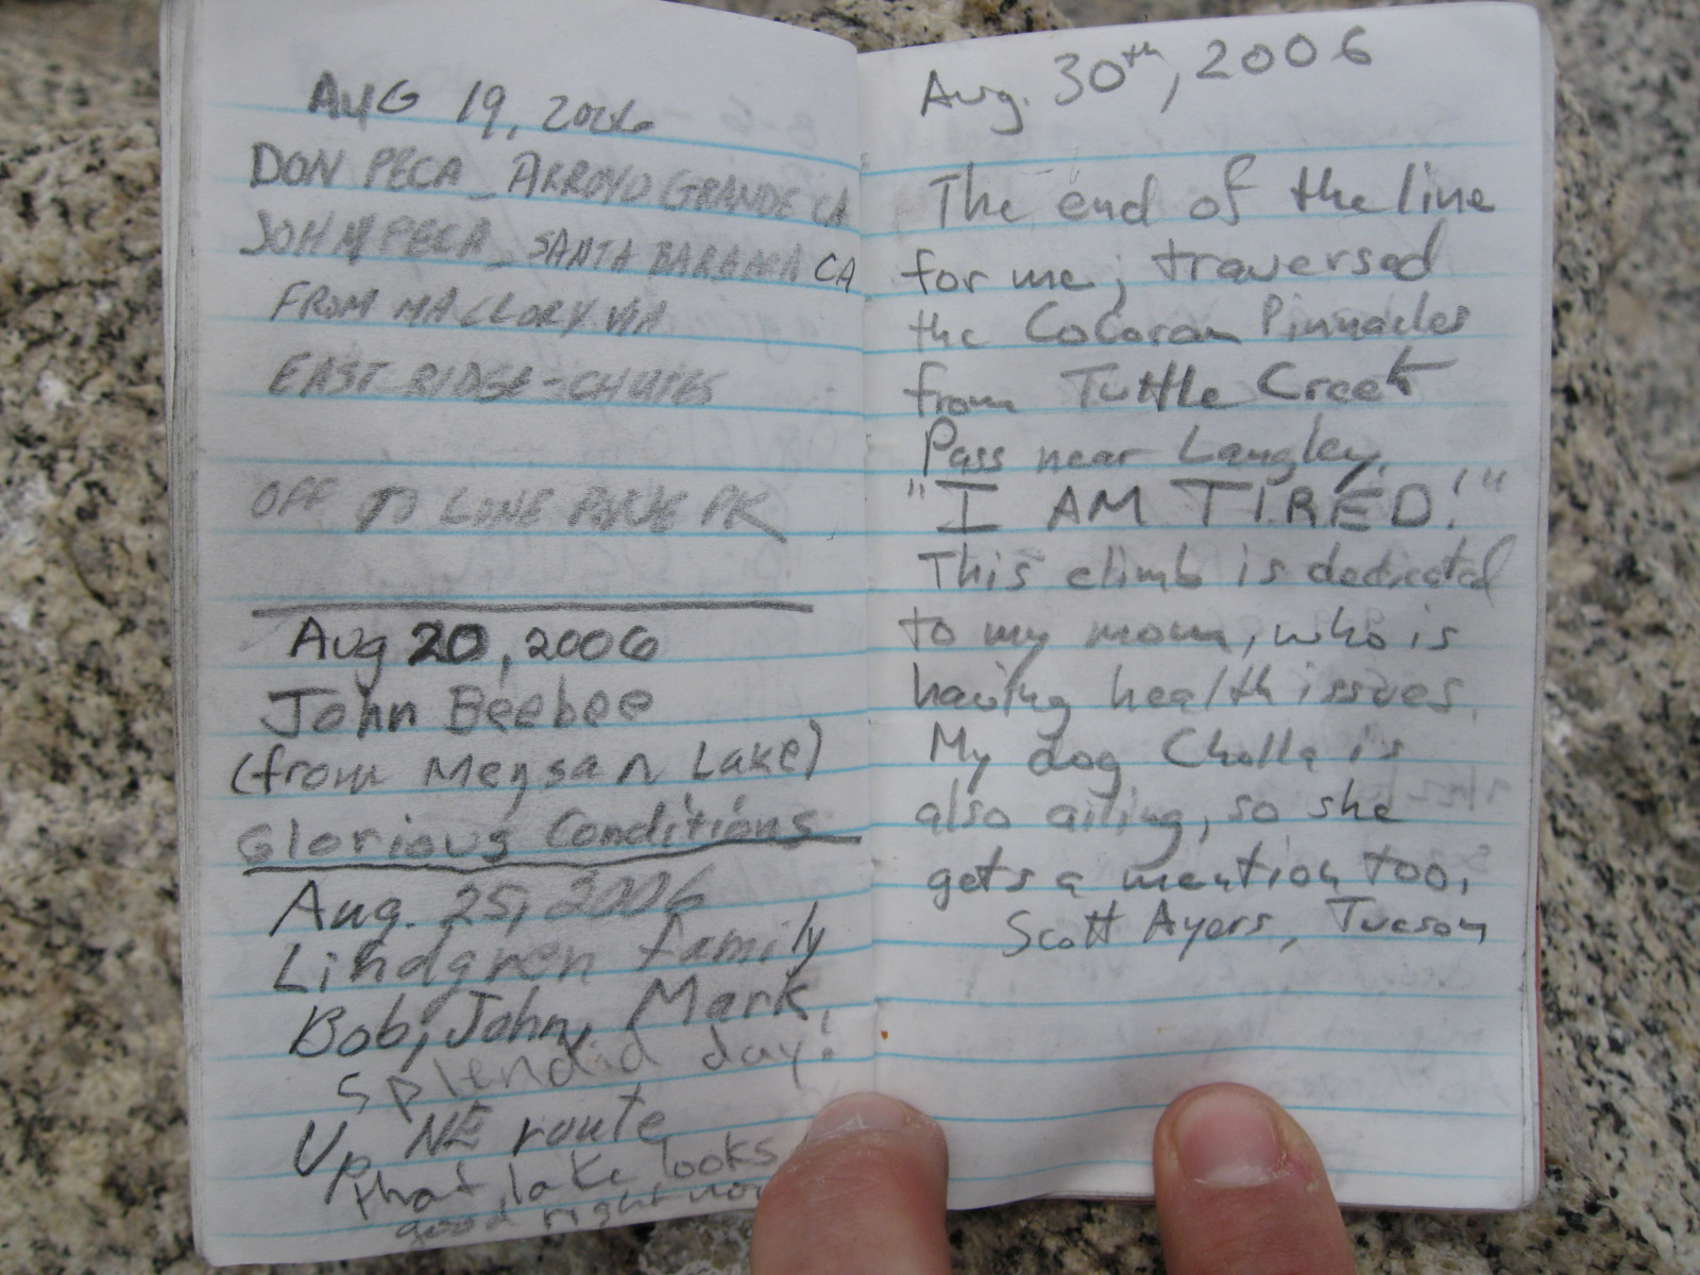 AUG 19, 2006
DON PECA - ARROYO GRANDE CA
JOHN PECA - SANTA BARBARA CA
FROM MALLORY VIA
EAST RIDGE - CHUTES
OFF TO LONE PINE PK
Aug 20, 2006
John Beebee
(from Meysan Lake)
Glorious Conditions
Aug. 25, 2006
Lindgren family
Bob, John, Mark,
splendid day!
Up NE route
that lake looks
good right now
Aug. 30th, 2006
The end of the line
for me; traversed
the Cocoran Pinnacles
from Tuttle Creek
Pass near Langley.
"I AM TIRED!"
This climb is dedicated
to my mom, who is
having health issues.
My dog Cholla is
also ailing, so she
gets a mention too.
Scott Ayers, Tucson